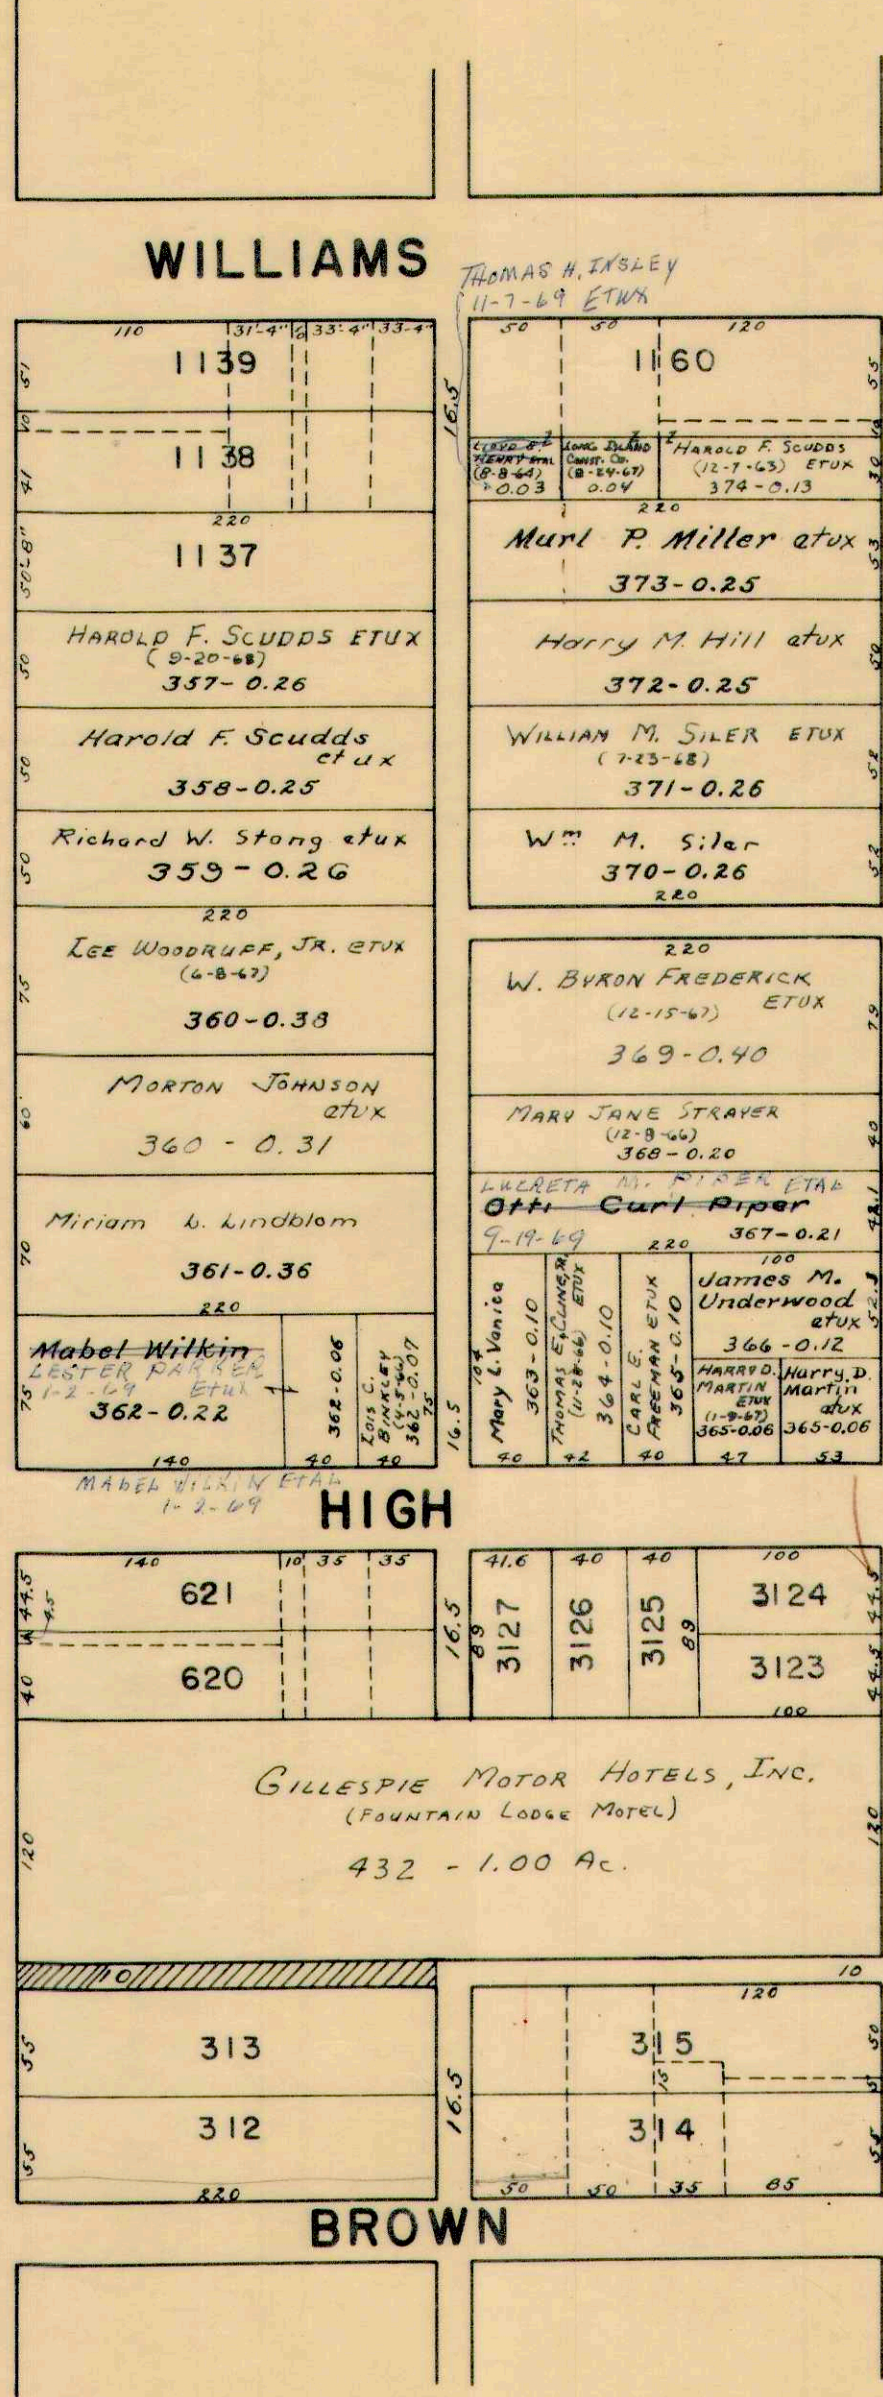 WILLIAMS
THOMAS H. INSLEY
11-7-69 ETUX
110 31'-4" 33'-4" 33-4"
51
1139
10
1138
41
220
50'-8"
1137
HAROLD F. SCUDDS ETUX
(9-20-68)
50
357-0.26
Harold F. Scudds
et ux
50
358-0.25
Richard W. Stong etux
50
359-0.26
220
LEE WOODRUFF, JR. ETUX
(6-8-67)
75
360-0.38
MORTON JOHNSON
etux
60
360 - 0.31
Miriam L. Lindblom
70
361-0.36
220
Mabel Wilkin
LESTER PARKER
1-2-69 Etux
75
362-0.22
140
362-0.06
40
LOIS C.
BINKLEY
(4-5-66)
362-0.07
75
40
MABEL WILKIN ETAL
1-2-69
16.5
50 50 120
1160
55
10
LLOYD S.
HENRY ETAL
(8-8-64)
0.03
LONG ISLAND
CONST. CO.
(8-24-67)
0.04
HAROLD F. SCUDDS
(12-7-63) ETUX
374-0.13
30
220
Murl P. Miller etux
53
373-0.25
Harry M. Hill etux
50
372-0.25
WILLIAM M. SILER ETUX
(7-23-68)
52
371-0.26
Wm M. Siler
52
370-0.26
220
220
W. BYRON FREDERICK
ETUX
(12-15-67)
79
369-0.40
MARY JANE STRAYER
(12-8-66)
40
368-0.20
LUCRETA M. PIPER ETAL
Otti Curl Piper
9-19-69
367-0.21
42.1
220
104
Mary L. Vanica
363-0.10
40
THOMAS E. CLINE, JR.
(11-28-66) ETUX
364-0.10
42
CARL E.
FREEMAN ETUX
365-0.10
40
100
James M.
Underwood
etux
366-0.12
52.3
HARRY D.
MARTIN
ETUX
(1-9-67)
365-0.06
47
Harry D.
Martin
etux
365-0.06
53
16.5
HIGH
140 10 35 35
44.5
4.5
621
620
40
16.5
41.6 40 40 100
89
3127
3126
3125
89
3124
44.5
3123
44.5
100
GILLESPIE MOTOR HOTELS, INC.
(FOUNTAIN LODGE MOTEL)
432 - 1.00 Ac.
120
120
10
55
313
312
55
220
16.5
120
315
50
15
5
314
55
50 50 35 85
BROWN